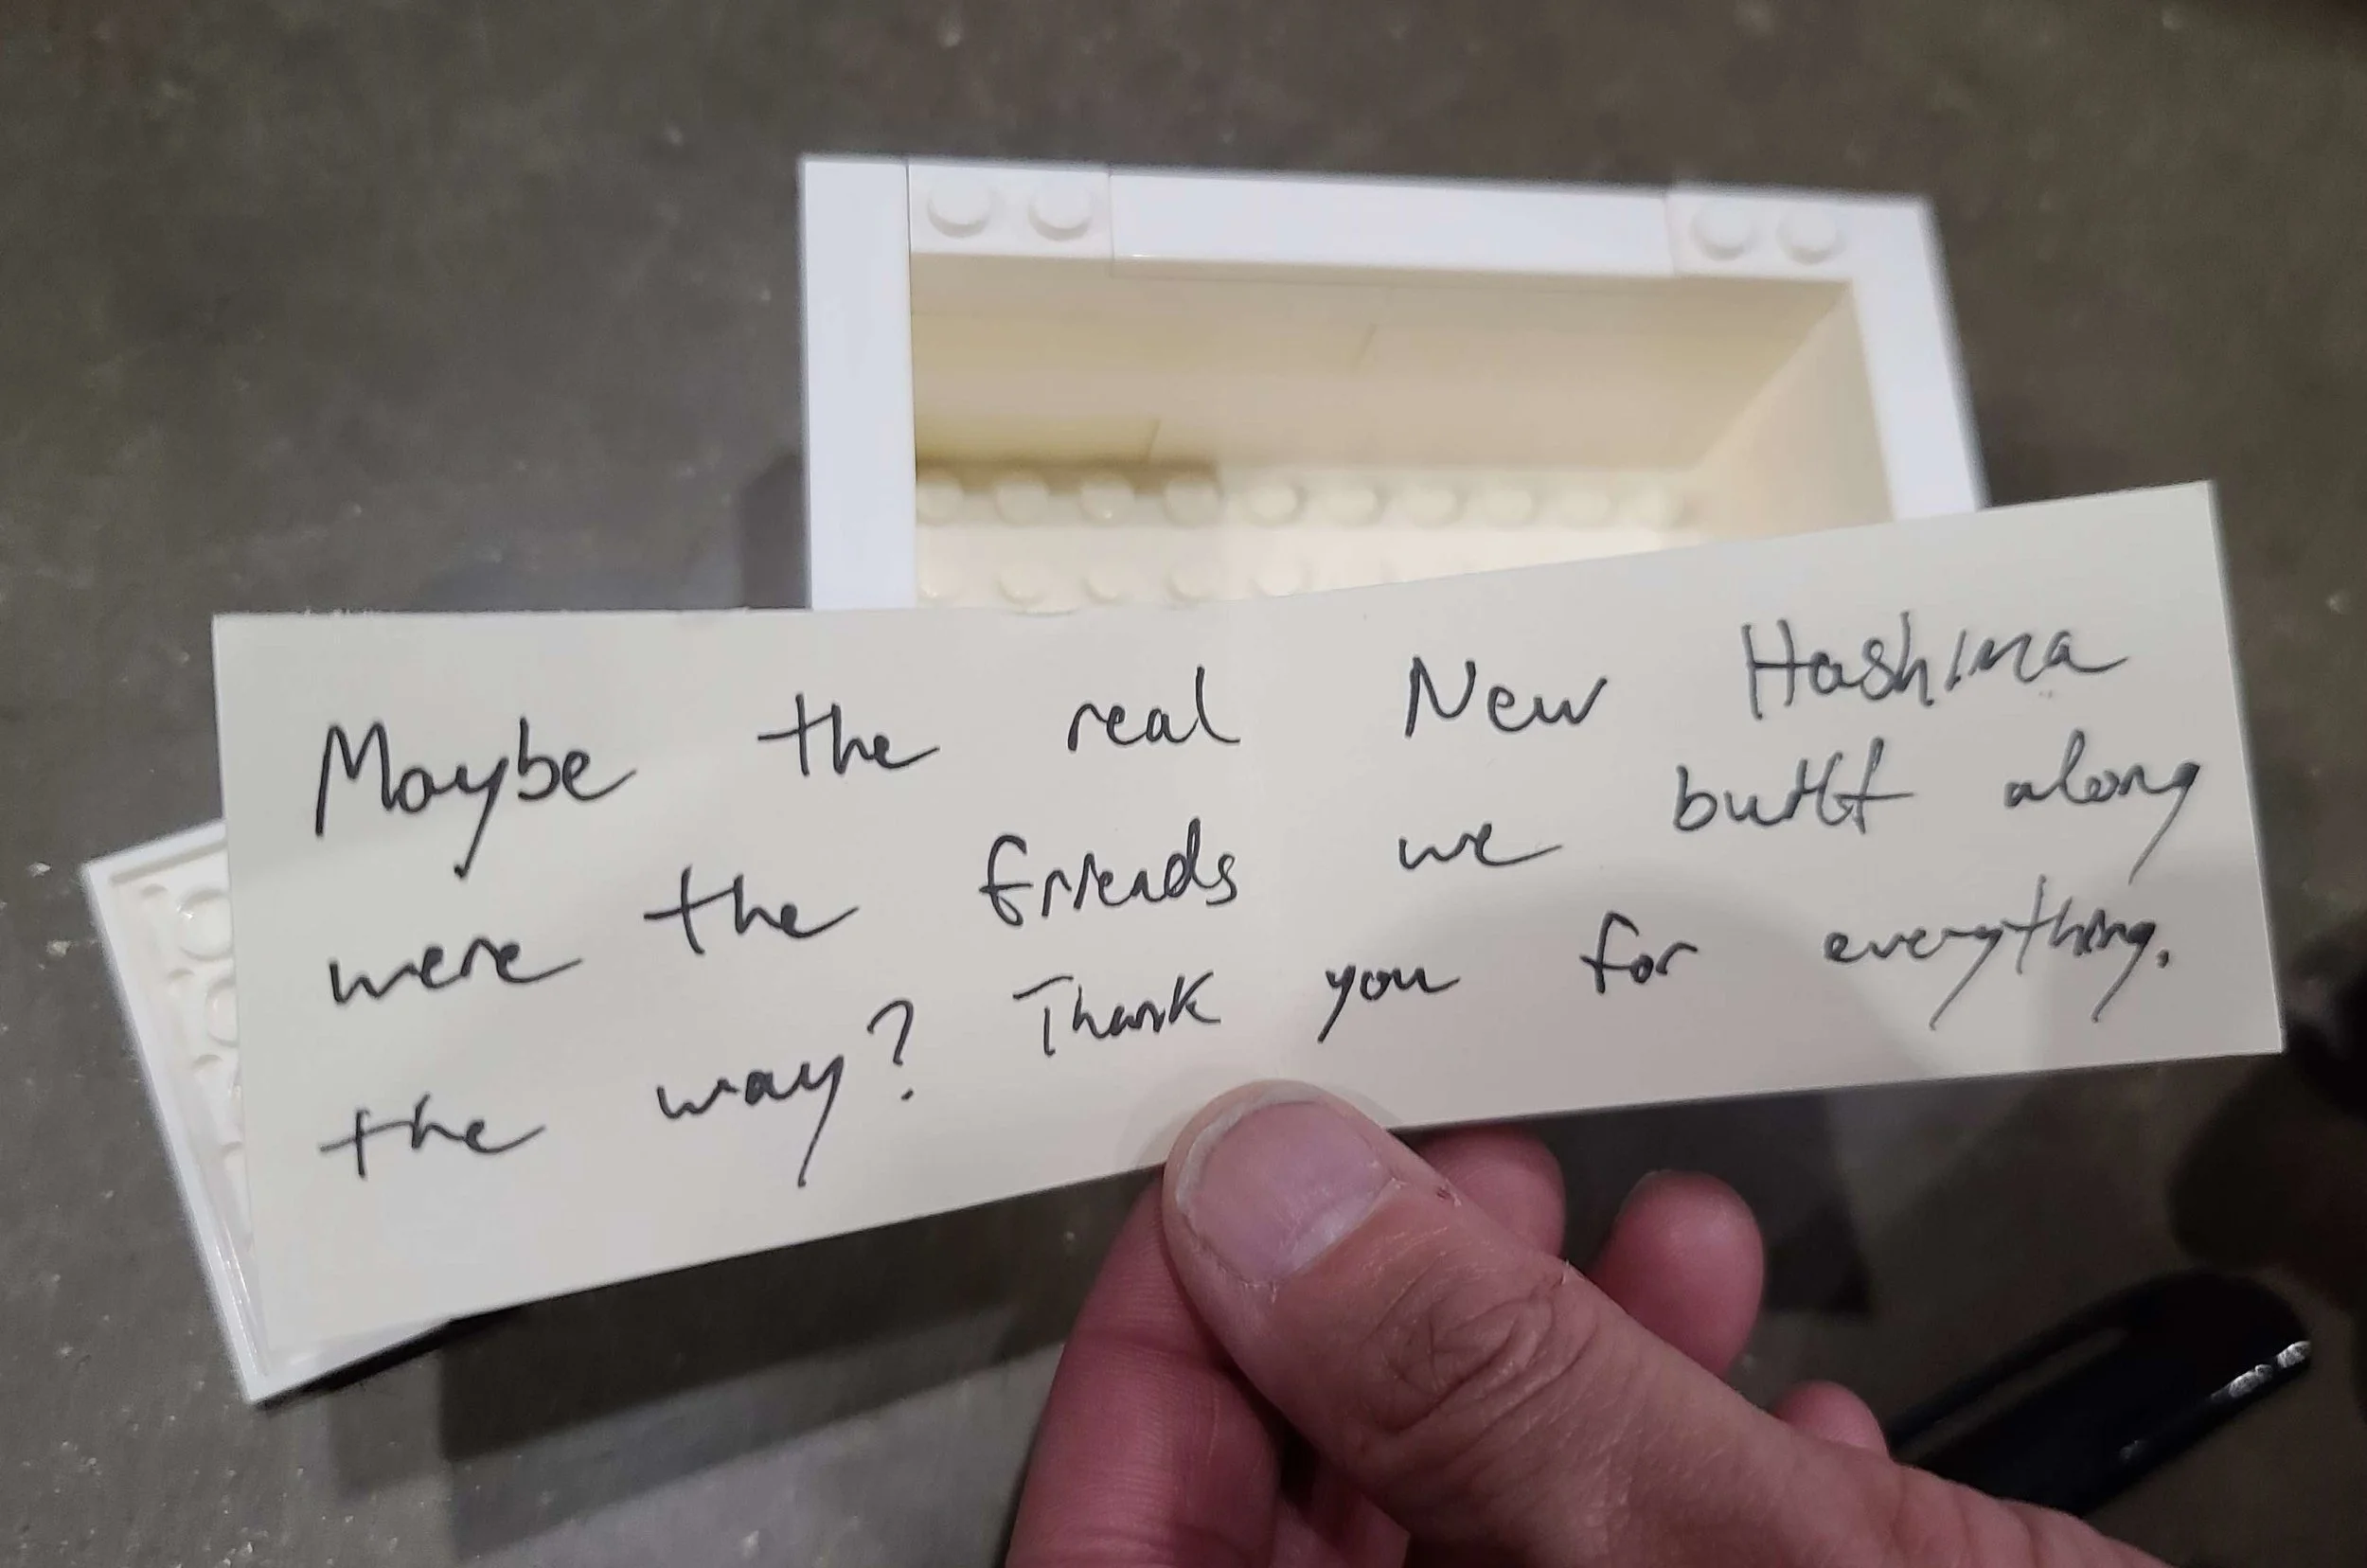 Maybe the real New Hashima
were the friends we built along
the way? Thank you for everything.